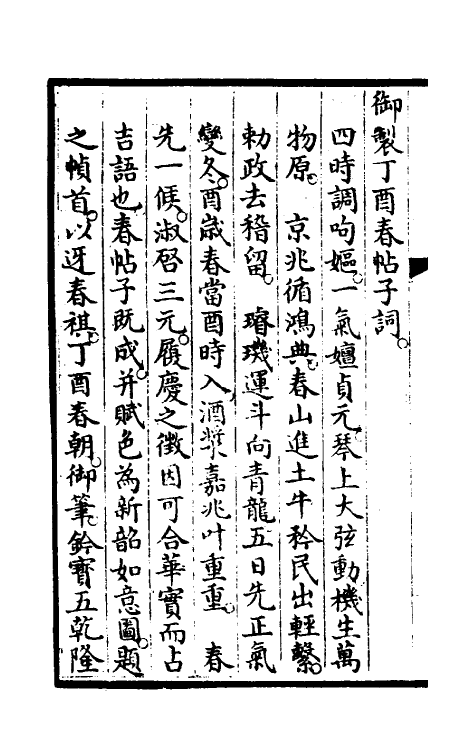 御製丁酉春帖子詞。
四時調呴嫗。一氣嬗貞元琴上大弦動機生萬
物原。　京兆循鴻典。春山進土牛矜民出輕繫。
勅政去稽留。　璿璣運斗向青龍五日先正氣
變冬。酉歲春當酉時入酒漿嘉兆叶重重。　春
先一候。淑啓三元。履慶之徵因可合華實而占
吉語也春帖子既成。并賦色為新韶如意圖。題
之幀首。以迓春祺。丁酉春朝。御筆。鈐寳五乾隆